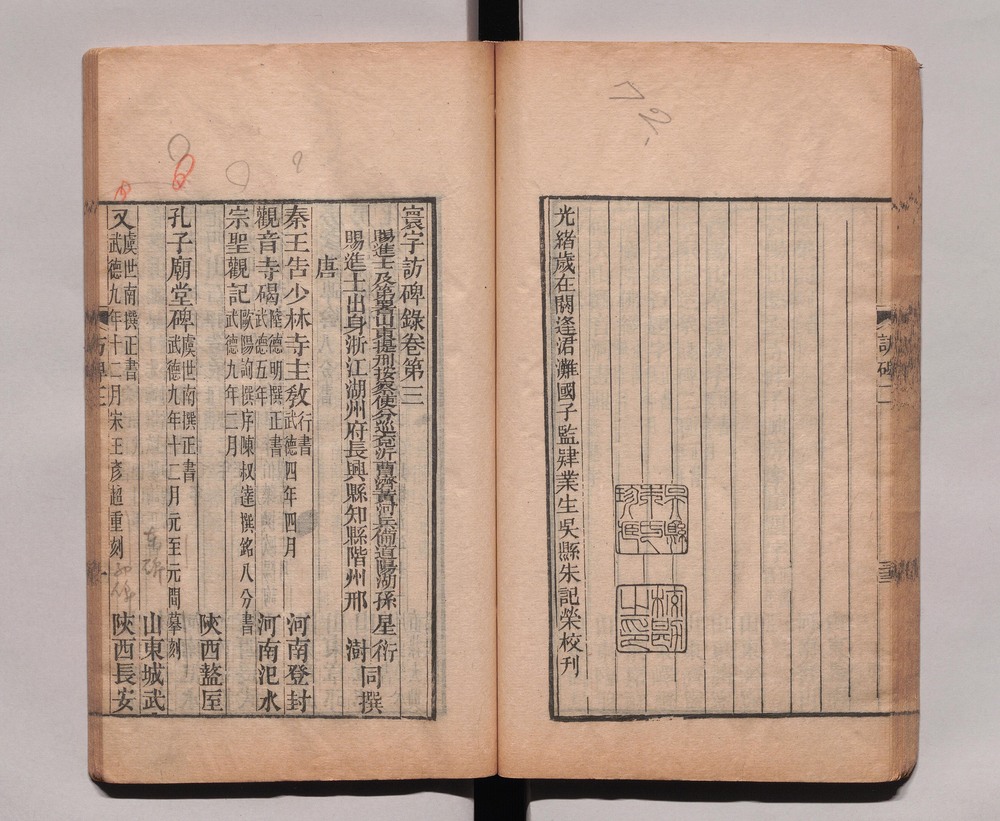 光緒歲在閼逢涒灘國子監肄業生吳縣朱記榮校刊
吳縣
朱氏
珍藏
校勘
之印
訪碑二
寰宇訪碑錄卷第三
賜進士及第署山東提刑按察使分巡兗沂曹濟黃河兵備道陽湖孫 星衍
賜進士出身浙江湖州府長興縣知縣階州邢 澍
同撰
唐
秦王告少林寺主教 行書 武德四年四月 河南登封
觀音寺碣 陸德明撰 正書 武德五年 河南汜水
宗聖觀記 歐陽詢撰序陳叔達撰銘八分書 武德九年二月 陝西盩厔
孔子廟堂碑 虞世南撰正書 武德九年十二月元至元間摹刻 山東城武
又 虞世南撰正書 武德九年十二月宋王彥超重刻 陝西長安